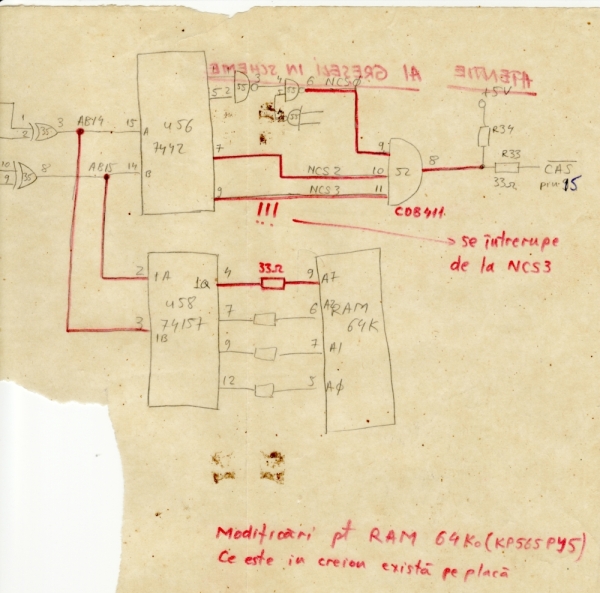 ATENTIE AI GRESELI IN SCHEME
+5V
1
2
35
3
AB14
15
A
U56
7442
5
2
3
4
6
NCS0
R34
9
10
11
52
8
R33
33Ω
CAS
15
CDB411
10
9
35
8
AB15
14
B
7
NCS2
9
NCS3
!!!
se întrerupe
de la NCS3
2
1A
U58
74157
3
1B
1Q
4
33Ω
9
A7
7
6
A2
RAM
64K
9
7
A1
12
5
AØ
Modificări pt RAM 64Ko (KP565PY5)
Ce este in creion există pe placă